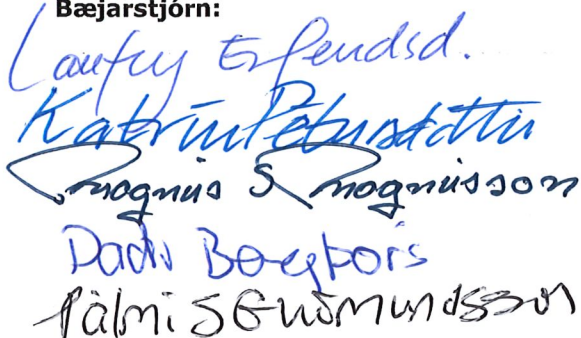 Bæjarstjórn:
Laufey Erlendsd.
Katrín Pétursdóttir
Magnús S Magnússon
Daði Bergþórs
Pálmi S Guðmundsson